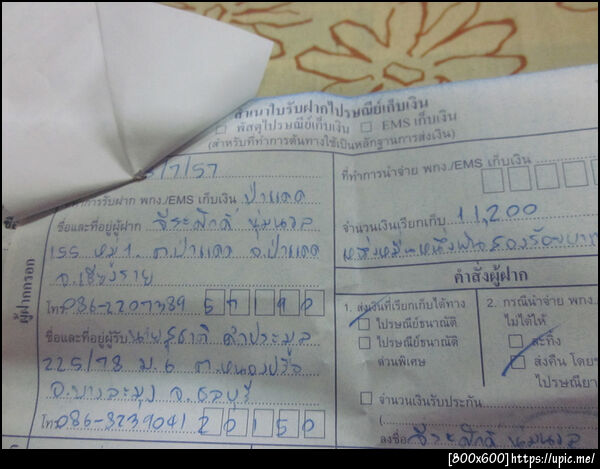 สำเนาใบรับฝากไปรษณีย์เก็บเงิน
☐ พัสดุไปรษณีย์เก็บเงิน ☐ EMS เก็บเงิน
(สำหรับที่ทำการต้นทางใช้เป็นหลักฐานการส่งเงิน)
/7/57
ทำการรับฝาก พกง./EMS เก็บเงิน ป่าแดด
ชื่อและที่อยู่ผู้ฝาก จีระศักดิ์ นุ่มนวล
155 หมู่ 1. ต.ป่าแดด อ.ป่าแดด
จ.เชียงราย
โทร. 086-2207389 57190
ชื่อและที่อยู่ผู้รับ นายสุชาติ คำประมูล
225/78 ม.6 ต.หนองปรือ
อ.บางละมุง จ.ชลบุรี
โทร. 086-8239041 20150
ผู้ฝากกรอก
ที่ทำการนำจ่าย พกง./EMS เก็บเงิน
จำนวนเงินเรียกเก็บ 11,200
หนึ่งหมื่นหนึ่งพันสองร้อยบาท
คำสั่งผู้ฝาก
1. ส่งเงินที่เรียกเก็บได้ทาง
☐ ไปรษณีย์ธนาณัติ
☐ ไปรษณีย์ธนาณัติ
ด่วนพิเศษ
2. กรณีนำจ่าย พกง.
ไม่ได้ให้
☐ ละทิ้ง
☐ ส่งคืน โดย
ไปรษณีย
☐ จำนวนเงินรับประกัน
(
ลงชื่อ จีระศักดิ์ นุ่มนวล
[800x600] https://upic.me/